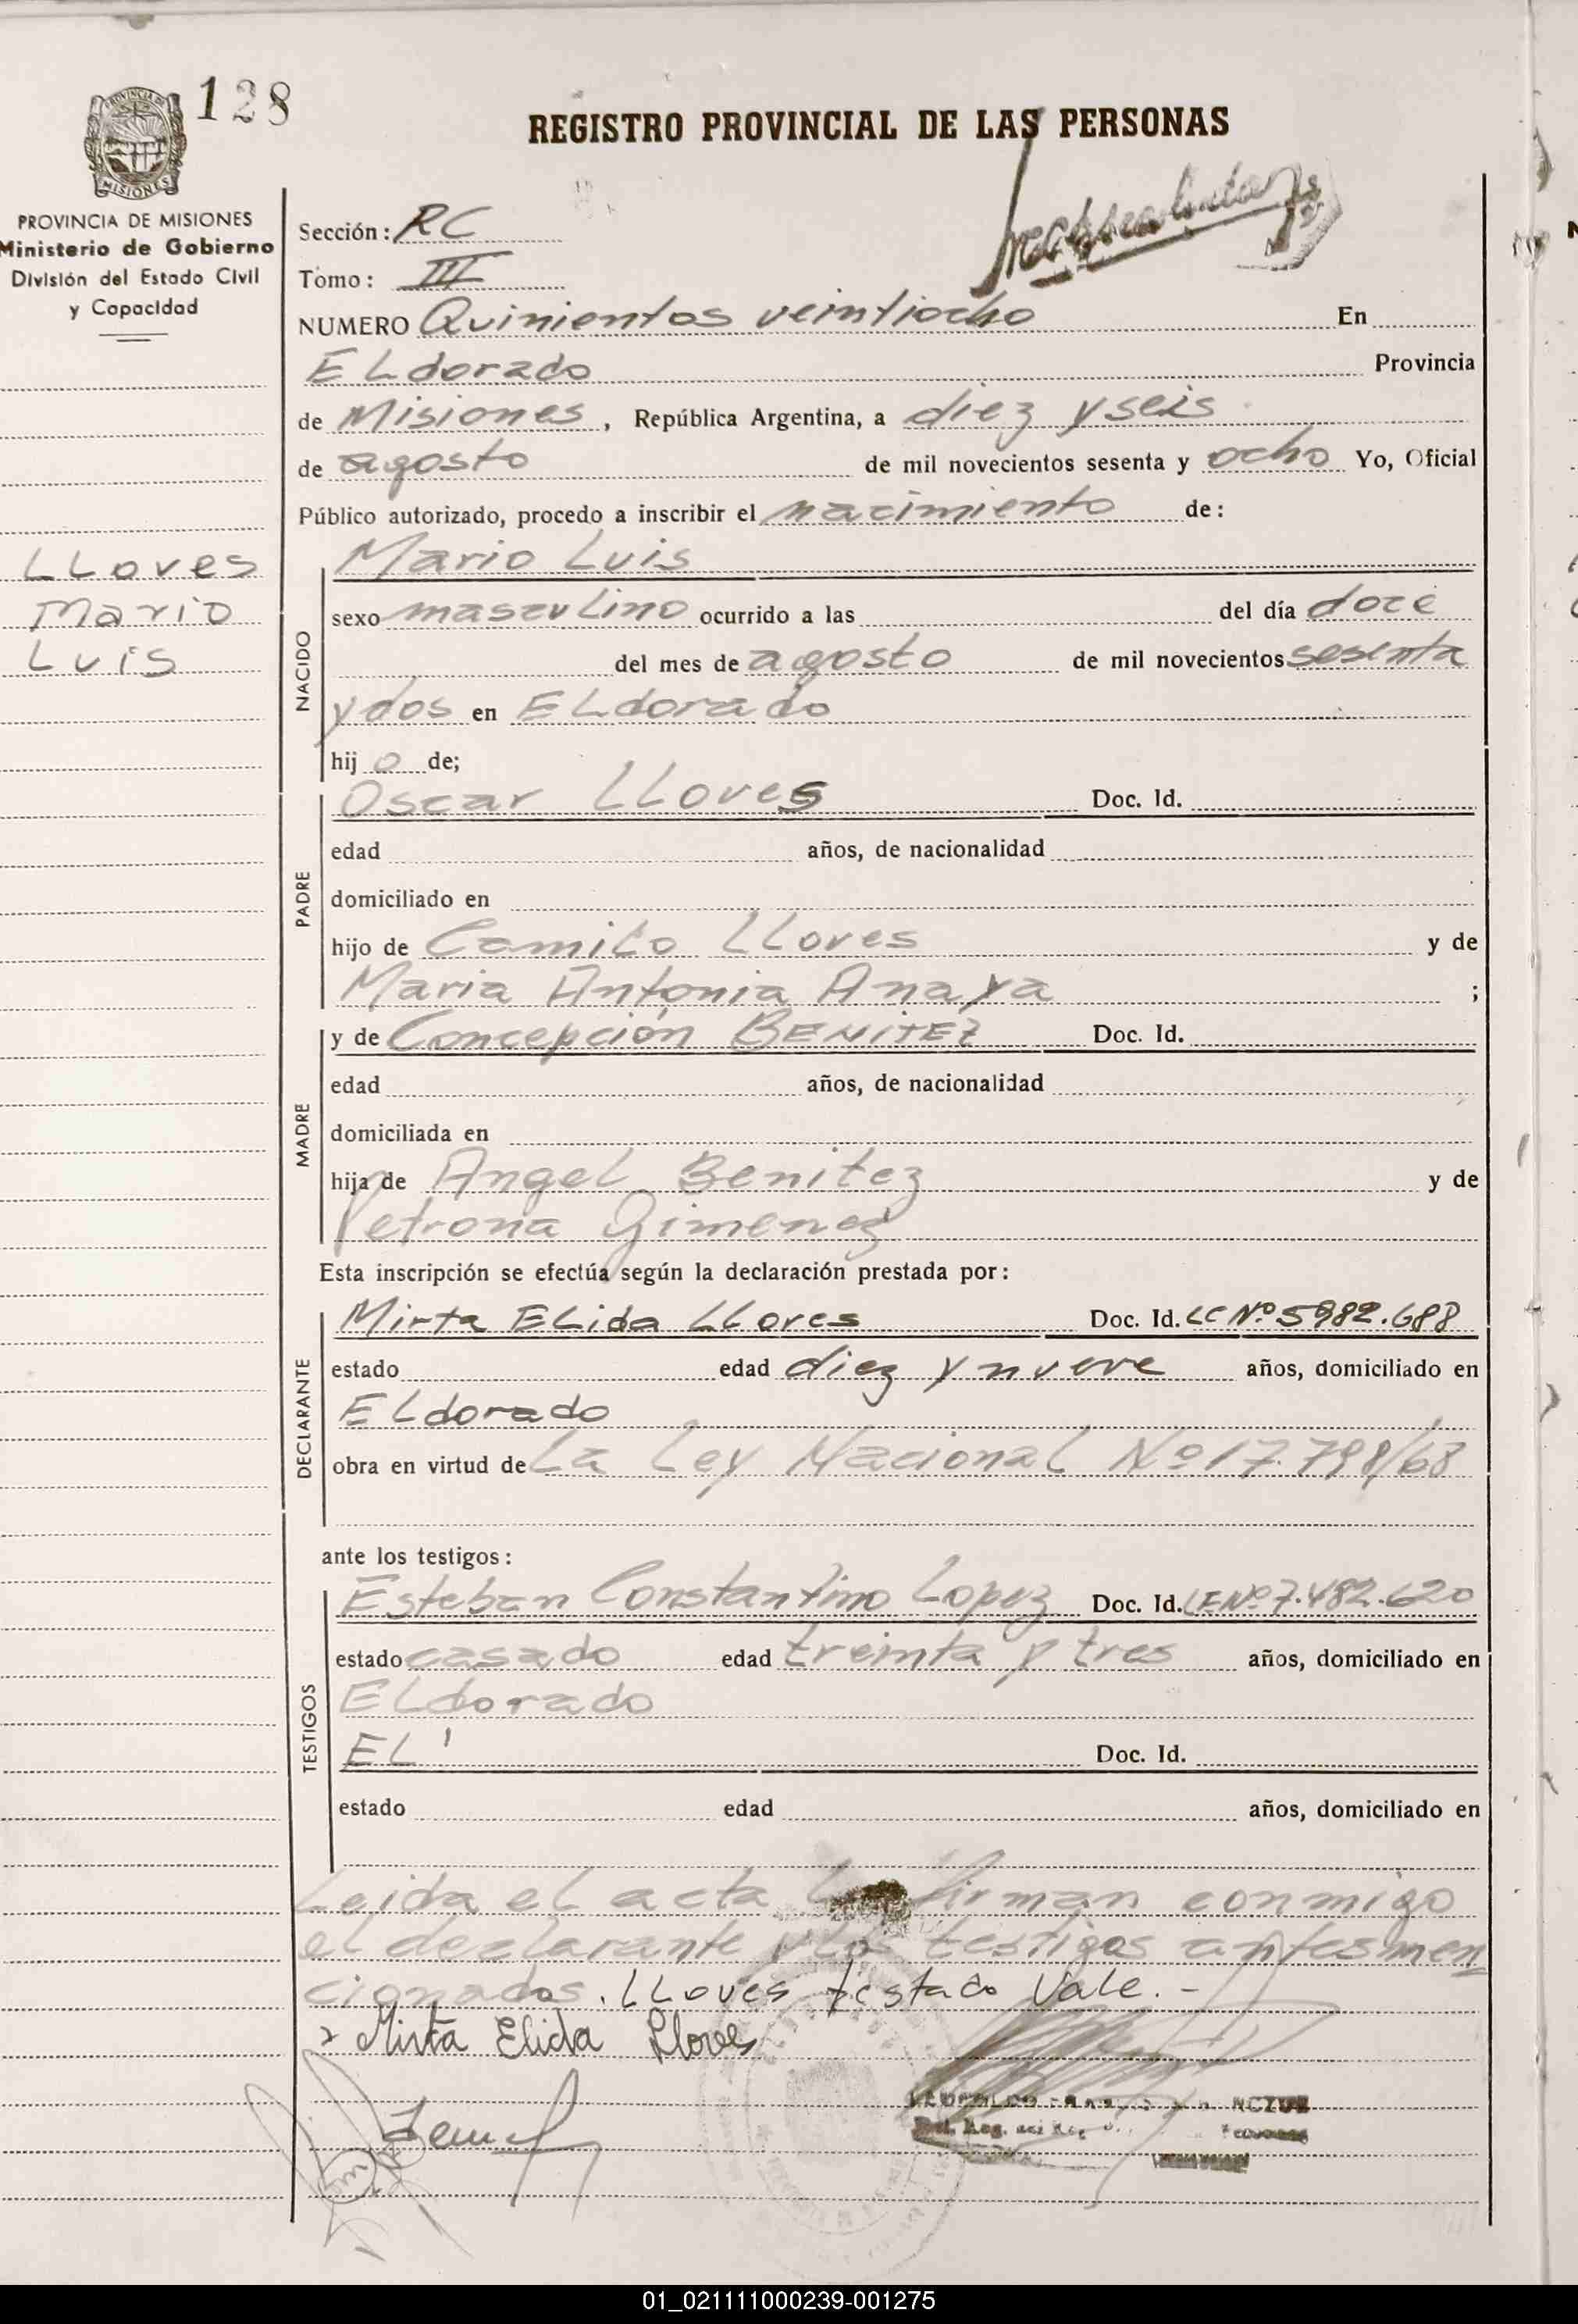 128
PROVINCIA DE
MISIONES
REGISTRO PROVINCIAL DE LAS PERSONAS
PROVINCIA DE MISIONES
Ministerio de Gobierno
División del Estado Civil
y Capacidad
Sección: RC
Tomo: III
NUMERO Quinientos veintiocho En
ELdorado Provincia
de Misiones, República Argentina, a diez y seis
de agosto de mil novecientos sesenta y ocho Yo, Oficial
Público autorizado, procedo a inscribir el nacimiento de:
LLoves
Mario
Luis
Mario Luis
NACIDO
sexo masculino ocurrido a las del día doce
del mes de agosto de mil novecientos sesenta
y dos en ELdorado
hijo de;
PADRE
Oscar LLoves Doc. Id.
edad años, de nacionalidad
domiciliado en
hijo de Camilo LLoves y de
Maria Antonia Anaya ;
MADRE
y de Concepción BENITEZ Doc. Id.
edad años, de nacionalidad
domiciliada en
hija de Angel Benitez y de
Petrona Gimenez
Esta inscripción se efectúa según la declaración prestada por:
DECLARANTE
Mirta ELida LLoves Doc. Id. LC Nº 5982.688
estado edad diez y nueve años, domiciliado en
ELdorado
obra en virtud de La Ley Nacional Nº 17.798/68
ante los testigos:
TESTIGOS
Esteban Constantino Lopez Doc. Id. LE Nº 7.482.620
estado casado edad treinta y tres años, domiciliado en
ELdorado
EL' Doc. Id.
estado edad años, domiciliado en
Leida el acta firman conmigo
el declarante y los testigos antes men
cionados. LLoves testado Vale. -
Mirta Elida Lloves
01_021111000239-001275